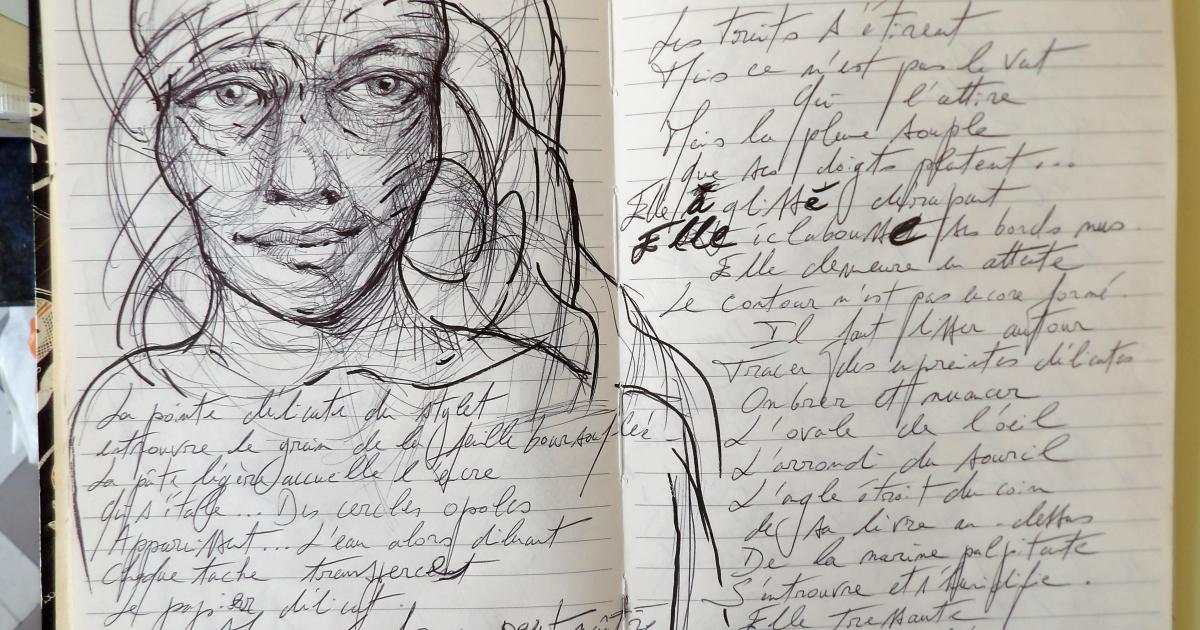 La pointe délicate du stylet
entrouvre le grain de la feuille boursouflée
La pâte légère accueille l'encre
qui s'étale... Des cercles opales
Apparaissent... L'eau alors diluant
Chaque tache transfercent
Le papier délicat.
peut naître
Les traits s'étirent
Mais ce n'est pas le vent
qui l'attire
Mais la plume souple
que ses doigts flattent...
Elle a glissé dérapant
Elle éclabousse ses bords nus.
Elle demeure en attente
Le contour n'est pas encore formé.
Il faut lisser autour
Tracer des empreintes délicates
Ombrer et nuancer
L'ovale de l'œil
L'arrondi du sourcil
L'angle étroit du coin
de sa lèvre au-dessus
De la narine palpitante
S'entrouvre et s'humidifie.
Elle tressaute